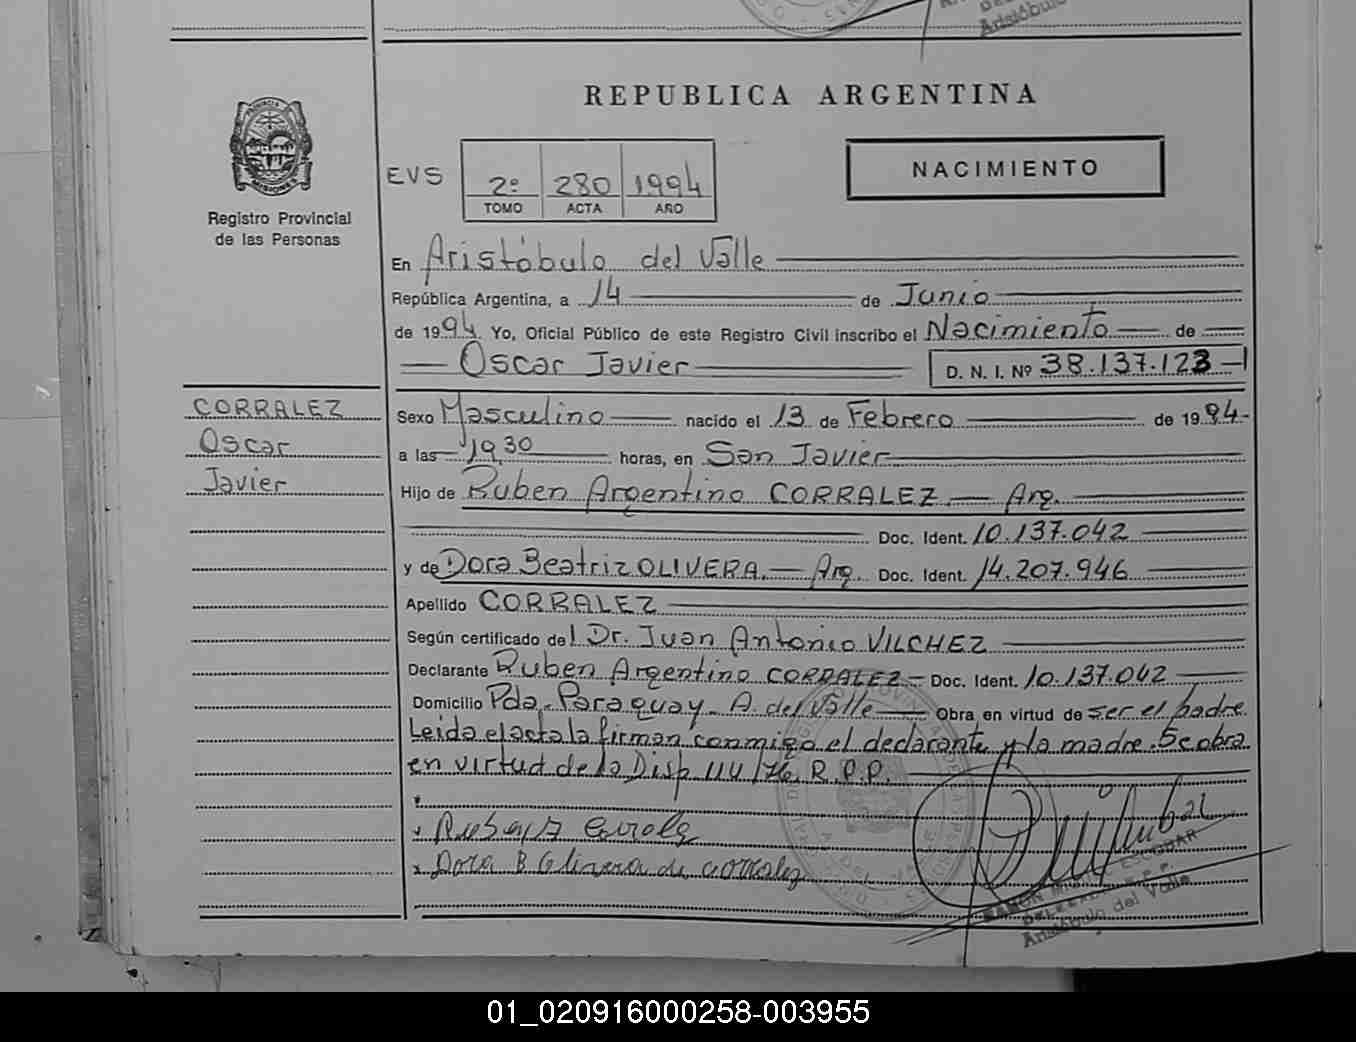 Aristóbulo
REPUBLICA ARGENTINA
PROVINCIA
MISIONES
Registro Provincial
de las Personas
EVS
2º 280 1994
TOMO ACTA AÑO
NACIMIENTO
En Aristóbulo del Valle
República Argentina, a 14 de Junio
de 1994 Yo, Oficial Público de este Registro Civil inscribo el Nacimiento de
Oscar Javier D. N. I. Nº 38.137.123
CORRALEZ
Oscar
Javier
Sexo Masculino nacido el 13 de Febrero de 1994-
a las 19,30 horas, en San Javier
Hijo de Ruben Argentino CORRALEZ.— Arg.
Doc. Ident. 10.137.042
y de Dora Beatriz OLIVERA.— Arg. Doc. Ident. 14.207.946
Apellido CORRALEZ
Según certificado del Dr. Juan Antonio VILCHEZ
Declarante Ruben Argentino CORRALEZ- Doc. Ident. 10.137.042
Domicilio Pda. Paraguay- A. del Valle Obra en virtud de ser el padre.
Leida el acta la firman conmigo el declarante y la madre. Se obra
en virtud de la Disp. R.P.P.
Dora B Olivera de Corralez
RAMON MIGUEL ESCOBAR
Aristóbulo del Valle
01_020916000258-003955